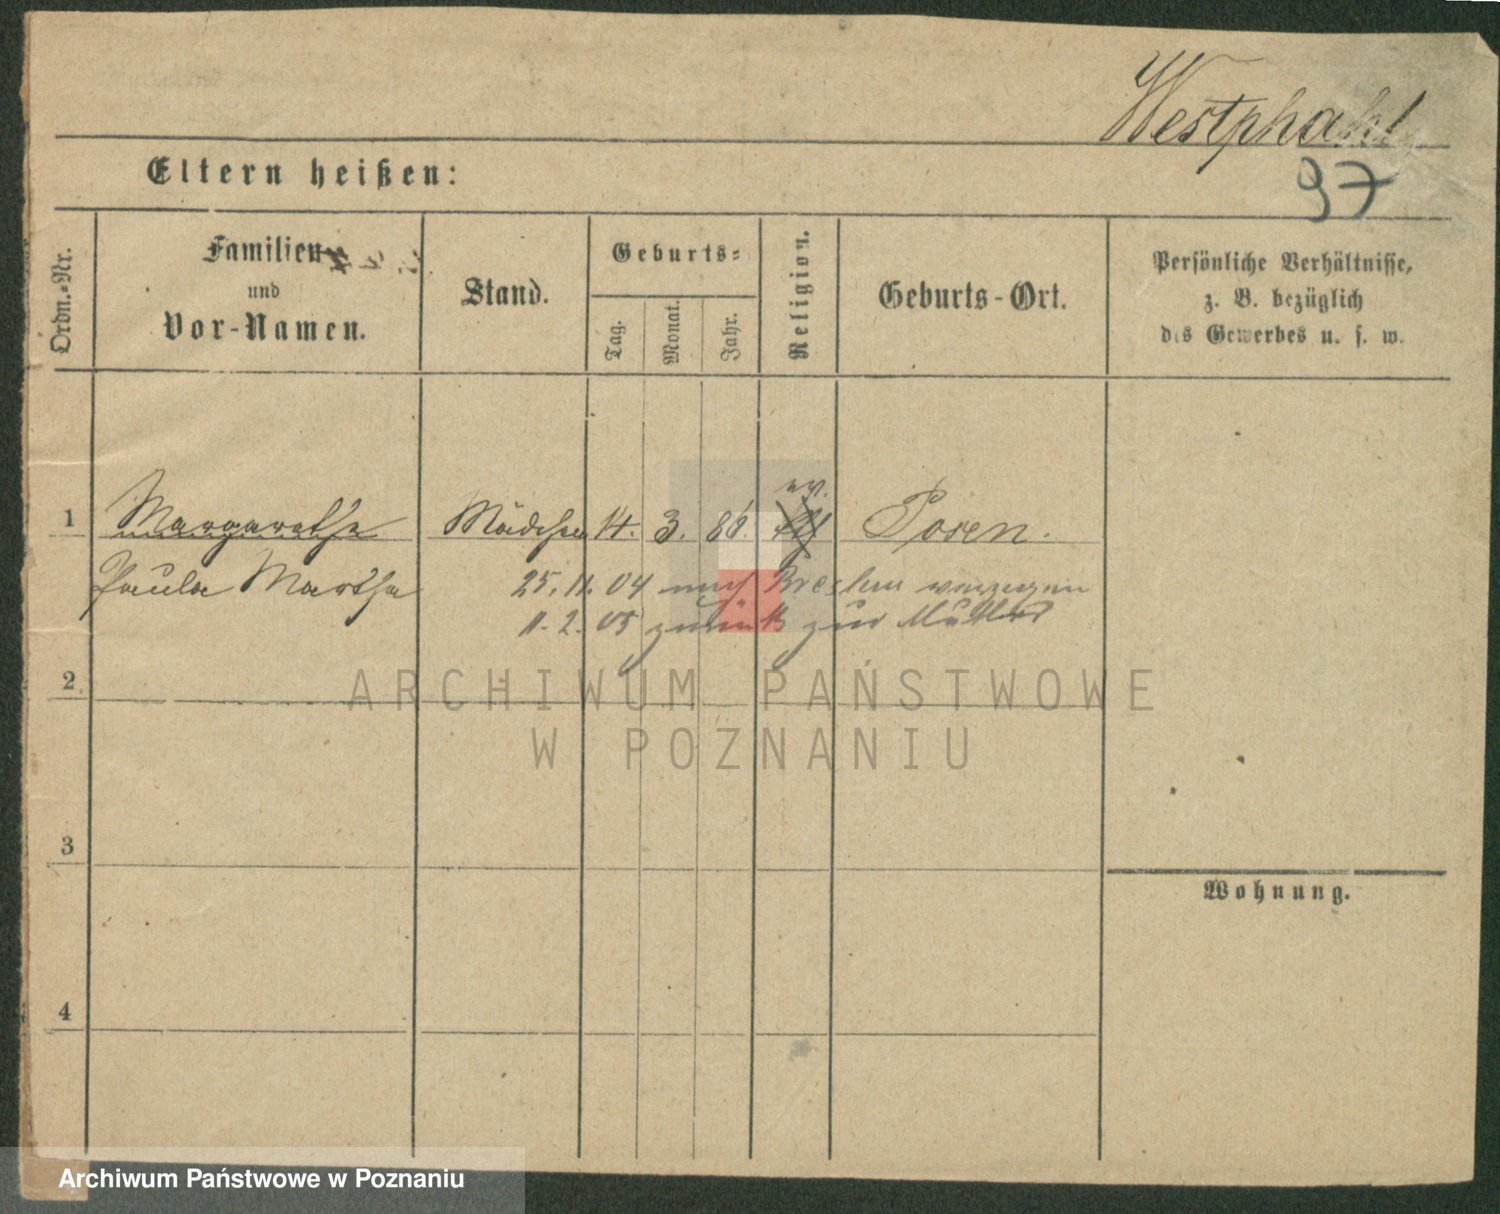 Westphahl
97
Eltern heißen:
Ordn.-Nr.
Familien
und
Vor-Namen.
Stand.
Geburts-
Tag.
Monat.
Jahr.
Religion.
Geburts-Ort.
Persönliche Verhältnisse,
z. B. bezüglich
des Gewerbes u. s. w.
ev.
1 Margarethe Mädchen 14. 3. 86. Posen.
Paula Martha 25. 11. 04 nach Breslau verzogen
11. 2. 05 zurück zur Mutter
2
ARCHIWUM PAŃSTWOWE
W POZNANIU
3
Wohnung.
4
Archiwum Państwowe w Poznaniu